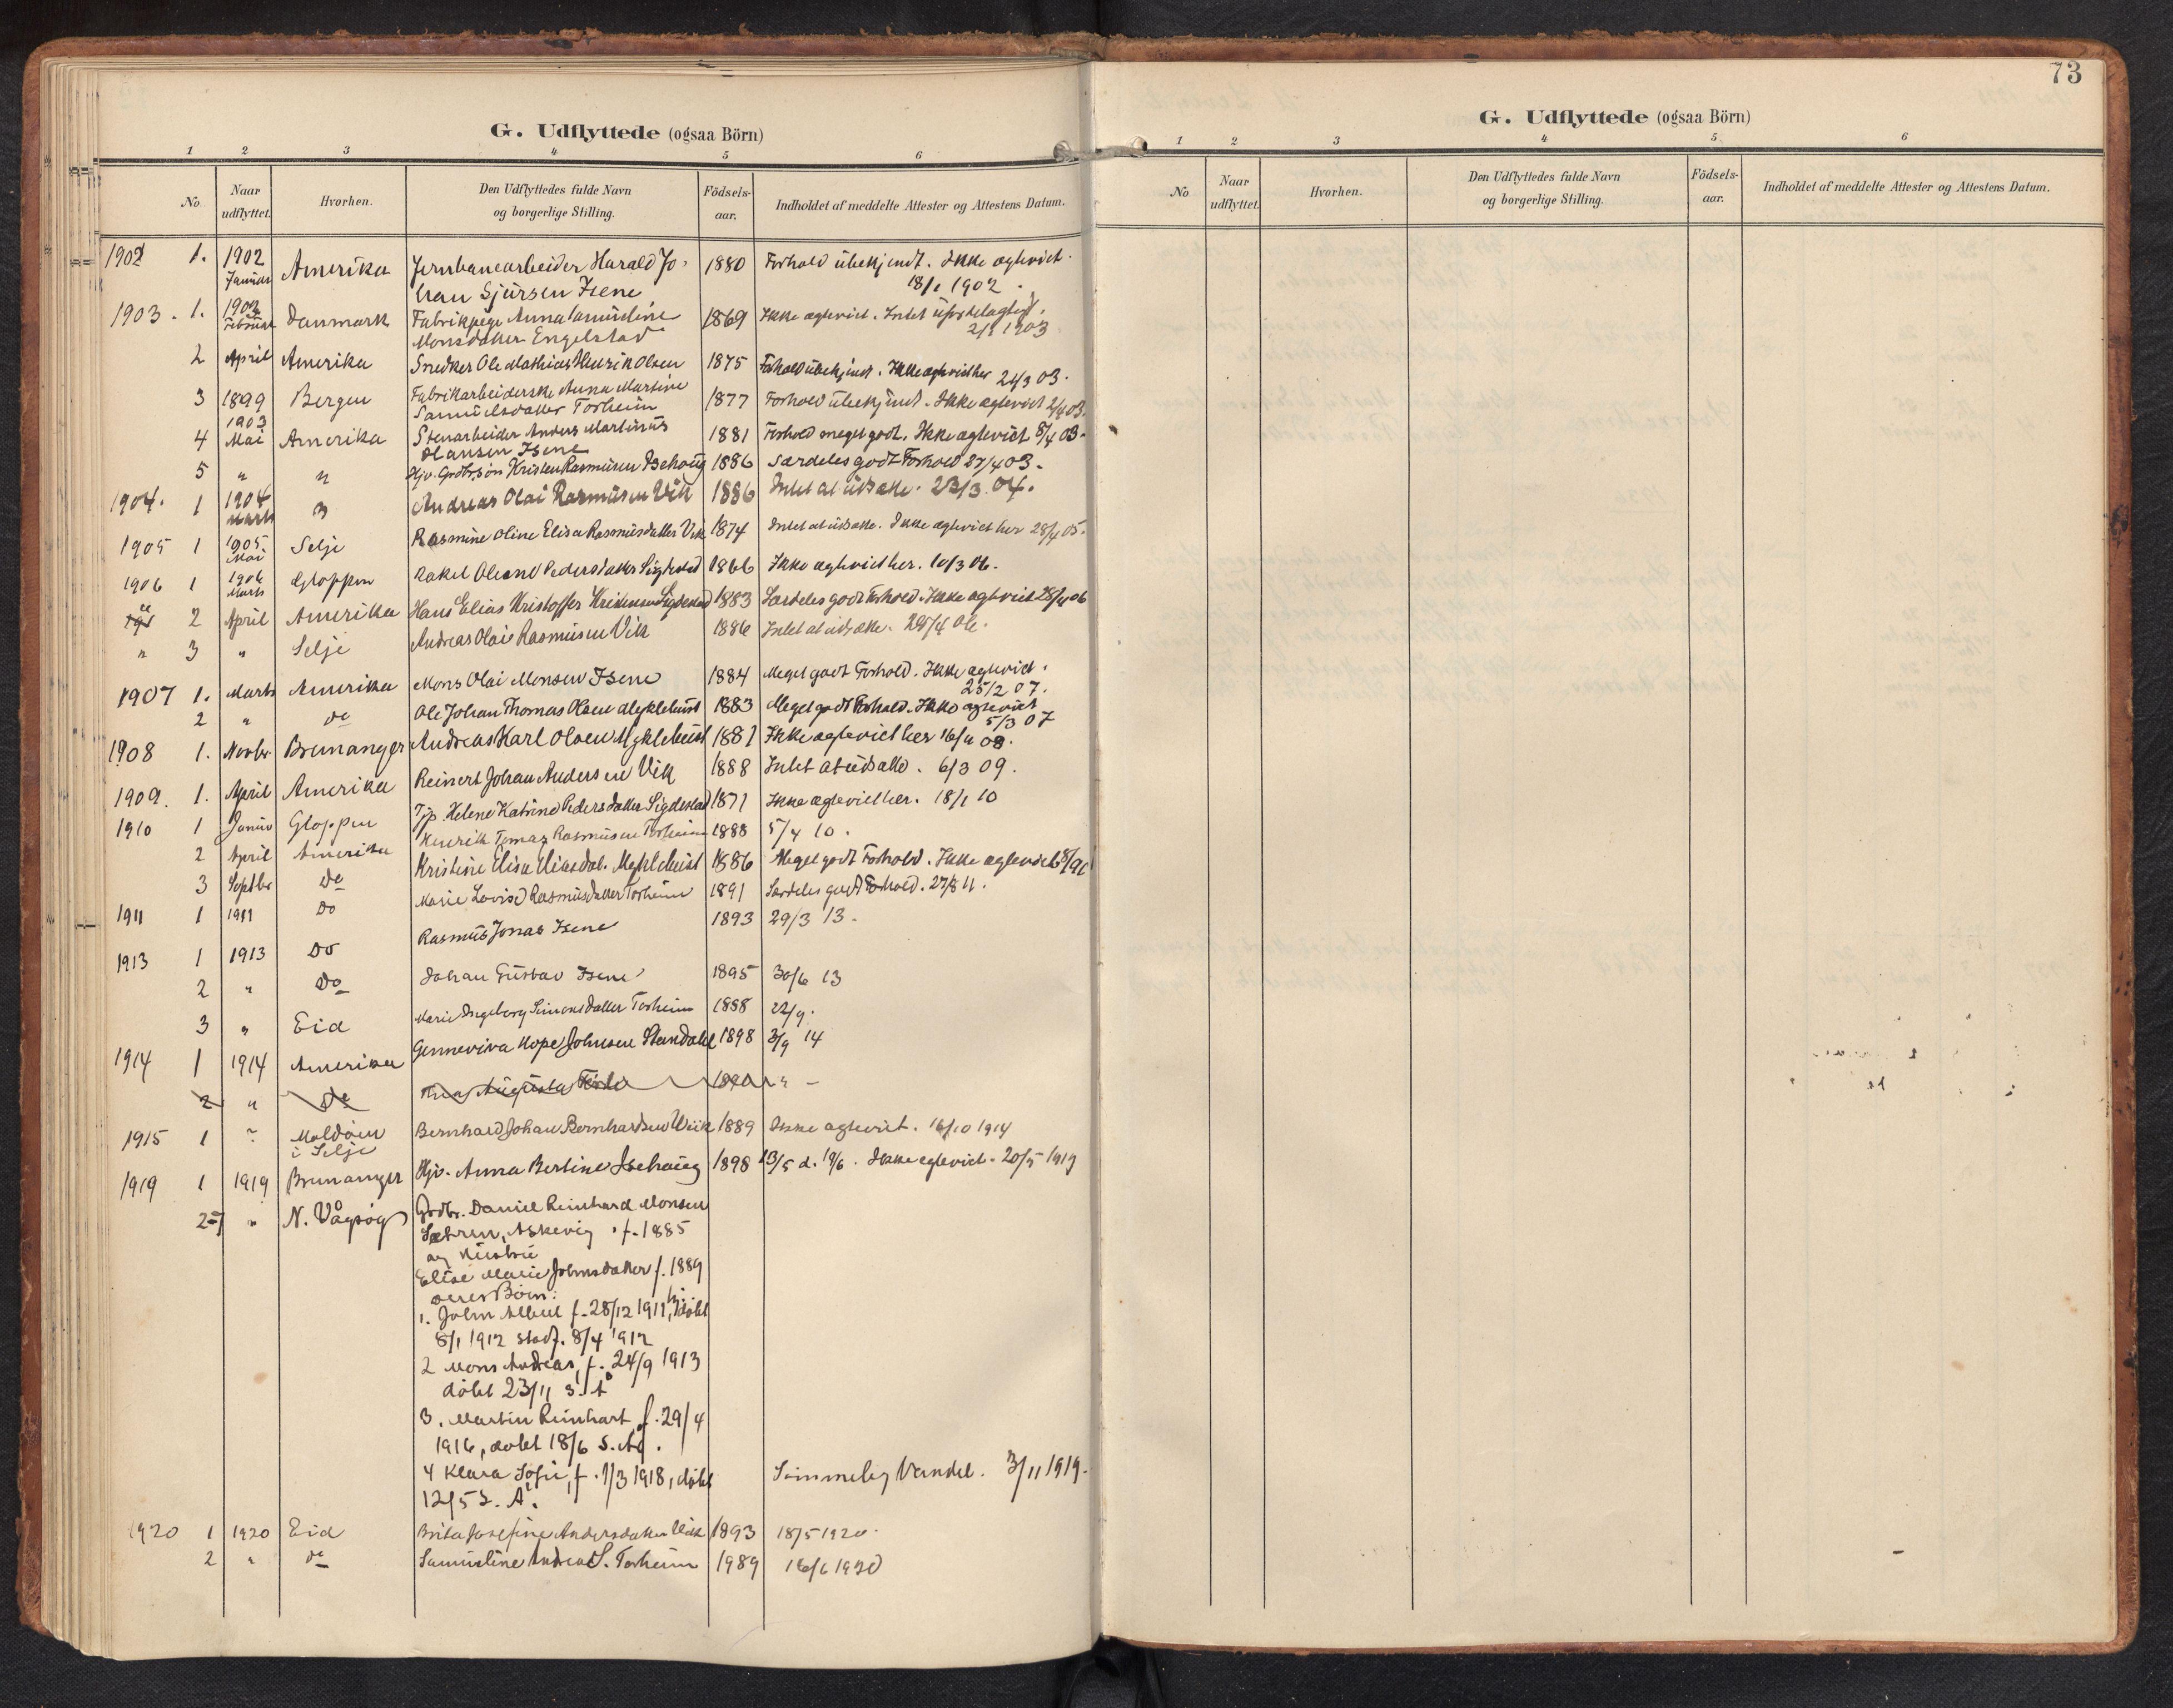 73
G. Udflyttede (ogsaa Börn)
1 2 3 4 5 6
No Naar udflyttet. Hvorhen. Den Udflyttedes fulde Navn og borgerlige Stilling. Födsels-aar. Indholdet af meddelte Attester og Attestens Datum.
1902 1. 1902 Januar Amerika Jernbanearbeider Harald Jo- 1880 Forhold übekjendt. Ikke ægteviet.
han Sjürsen Isene 18/1 1902.
1903. 1. 1903 Februar Danmark Fabrikpige Anna 1869 Ikke ægteviet. Intet
Monsdatter Engelstad 2/2 1903
2 April Amerika Snedker Ole Mathias Henrik Olsen 1875 Forhold übekjendt. Ikke ægteviet her 24/3 03.
3 1899 Bergen Fabrikarbeiderske Anna Martine 1877 Forhold übekjendt. Ikke ægteviet 2/4 03.
Samüelsdatter Torheim
4 1903 Mai Amerika Stenarbeider Anders Martinüs 1881 Forhold meget godt. Ikke ægteviet 8/4 03.
Olansen Isene
5 " " Gjv. Grdbr.søn Kristen Rasmüsen Isehoüg 1886 Særdeles godt Forhold 27/4 03.
1904. 1 1904 Marts " Andreas Olai Rasmüsen Vik 1886 Intet at üdsætte. 23/3 04.
1905 1 1905 Mai Selje Rasmine Oline Elisa Rasmüsdatter Vik 1874 Intet at üdsætte. Ikke ægteviet her 28/4 05.
1906 1 1906 Marts Gloppen Rakel Oleane Pedersdatter Sigdestad 1866 Ikke ægteviet her. 10/3 06.
2 April Amerika Hans Elias Kristoffer Kristensen Sigdestad 1883 Særdeles godt Forhold. Ikke ægteviet 28/4 06
" 3 " Selje Andreas Olai Rasmüsen Vik 1886 Intet at üdsætte. 25/4 06.
1907 1. Marts Amerika Mons Olai Monsen Isene 1884 Meget godt Forhold. Ikke ægteviet.
25/2 07.
2 " do Ole Johan Thomas Olsen Myklebüst 1883 Meget godt Forhold. Ikke ægteviet
5/3 07
1908 1. Novbr. Bremanger Andreas Karl Olsen Myklebüst 1881 Ikke ægteviet her 16/11 08.
1909. 1. April Amerika Reinert Johan Andersen Vik 1888 Intet at üdsætte. 6/3 09.
1910 1 Janür Gloppen Tjp. Helene Katrine Pedersdatter Sigdestad 1871 Ikke ægteviet her. 18/1 10
2 April Amerika Henrik Tomas Rasmüsen Torheim 1888 5/4 10.
3 Septbr do Kristine Elisa Eliasdat. Myklebüst 1886 Meget godt Forhold. Ikke ægteviet
1911 1 1911 Do Marie Lovise Rasmüsdatter Torheim 1891 Særdeles godt Forhold. 27/8 11.
1913 1 1913 Do Rasmüs Jonas Isene 1893 29/3 13.
2 " Do Johan Güstav Isene 1895 30/6 13
3 " Eid Marie Ingeborg Simonsdatter Torheim 1888 22/9.
1914 1 1914 Amerika Genneviva Hope Johnsen Stendahl 1898 3/9 14
2 " do Augüsta 1890 " –
1915 1 " Moldøen i Selje Bernhard Johan Bernhardsen Wiik 1889 Ikke ægteviet. 16/10 1914
1919 1 1919 Bremanger Gjv. Anna Bertine Isehaüg 1898 13/5 d. 19/6. Ikke ægteviet. 20/5 1919
2-7 " N. Vågsøg Grdbr. Daniel Reinhard Monsen
Sætren, Askevig f. 1885
og Hüstrü
Elise Marie Johnsdatter f. 1889
deres Börn:
1. John Albert f. 28/12 1911, hj. döbt
8/1 1912 stadf. 8/4 1912
2 Mons Andreas, f. 24/9 1913
döbt 23/11 s. å
3. Martin Reinhart f. 29/4
1916, döbt 18/6 s. A.
4 Klara Sofie, f. 1/3 1918, döbt Sömmelig Vandel. 3/11 1919.
12/5 s. A.
1920 1 1920 Eid Brita Josefine Andersdatter Vik 1893 18/5 1920.
2 " do Samüeline Andrea S. Torheim 1989 16/6 1920
G. Udflyttede (ogsaa Börn)
1 2 3 4 5 6
No Naar udflyttet. Hvorhen. Den Udflyttedes fulde Navn og borgerlige Stilling. Födsels-aar. Indholdet af meddelte Attester og Attestens Datum.